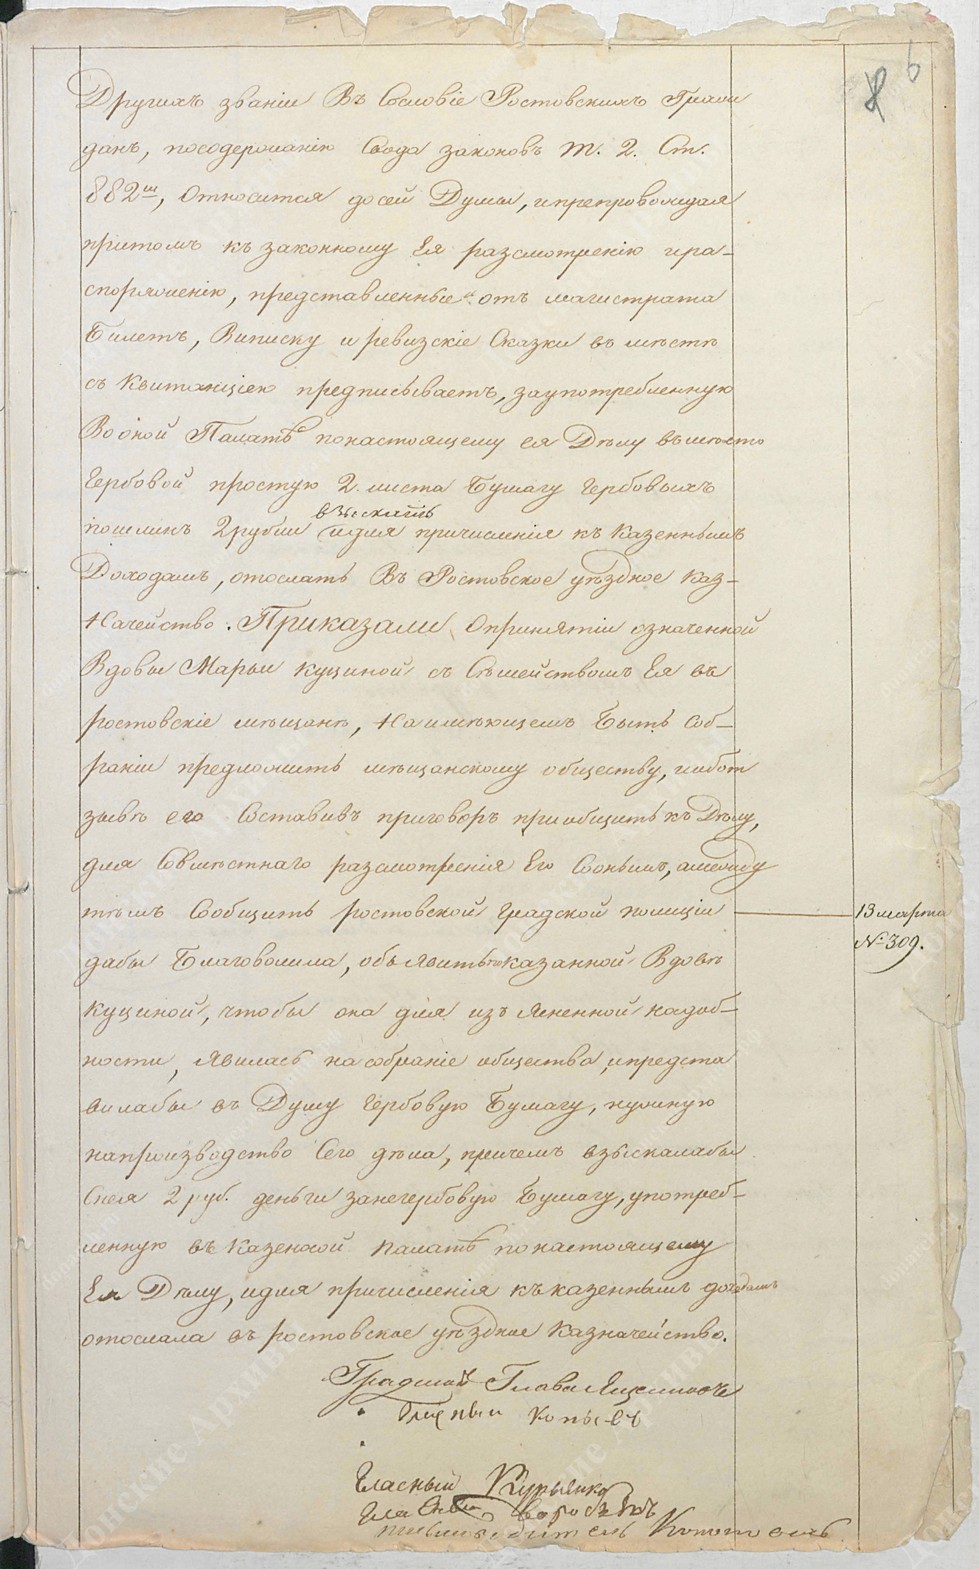 8 6
Другихъ званіи Въ Сословіе Ростовскихъ Граж
данъ, посодержанію Свода законовъ Т. 2. Ст.
882й, относится досей Думы, ипрепровождая
притомъ къ законному Ея разсмотренію ира-
споряженію, представленные отъ магистрата
Билетъ, Выписку и ревизскіе Сказки въ мѣстѣ
съ Квитанціею предписываетъ, заупотребленную
Вооной Палатѣ понастоящему ея Дѣлу вместо
Гербовой простую 2. листа Бумагу Гербовыхъ
взыскать
пошлинъ 2 рубли идля причисленія къ Казеннымъ
Доходамъ, отослать Въ Ростовское уѣздное Каз-
Начейство. Приказали, Опринятіи означенной
Вдовы Марьи Куциной съ Семействомъ Ея въ
ростовскіе мѣщанѣ, Наимѣющемъ Быть Соб-
раніи предложить мѣщанскому обществу, ипоот
зывѣ его Составивъ приговоръ приобщить къ Дѣлу,
для Совместнаго разсмотренія Его Соонымъ, амежду
тѣмъ Сообщить ростовской Градской полиціи
13 марта
№ 309.
дабы Благоволила, объявить казанной Вдовѣ
Куциной, чтобы она для изъясненной надоб-
ности, явилась насобраніе общества, ипредста
вилабы въ Думу Гербовую Бумагу, нужную
напроизводство Сего дѣла, причемъ взыскалабы
Снея 2 руб. деньги занегербовую Бумагу, употреб-
ленную въ Казенной палатѣ понастоящему
Ея Дѣлу, идля причисленія къ казеннымъ доходамъ
отослала въ ростовское уѣздное Казначейство.
Градской Глава Ященковъ
Гласный Копыевъ
Гласный Курыенко
Гласный Воробьевъ
письмоводитель